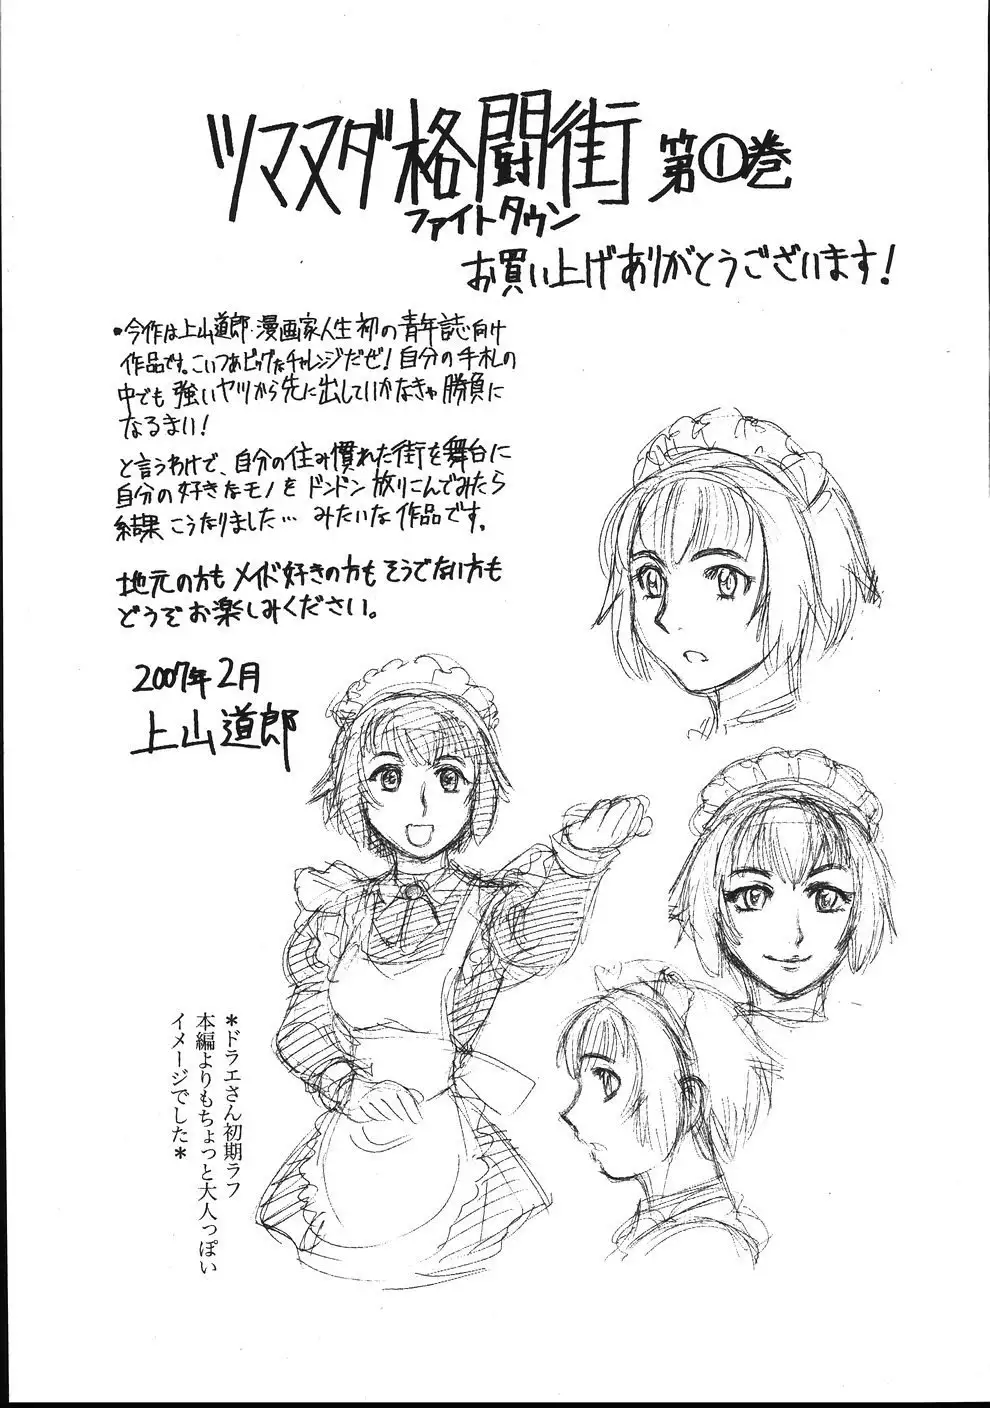 ツマヌダ格闘街 第①巻
ファイトタウン
お買い上げありがとうございます！
・今作は上山道郎・漫画家人生初の青年誌向け
作品です。こいつあビッグなチャレンジだぜ！自分の手札の
中でも強いヤツから先に出していかなきゃ勝負に
なるまい！
と言うわけで、自分の住み慣れた街を舞台に
自分の好きなモノをドンドン放りこんでみたら
結果こうなりました… みたいな作品です。
地元の方もメイド好きの方もそうでない方も
どうぞお楽しみください。
2007年2月
上山道郎
＊ドラエさん初期ラフ
本編よりもちょっと大人っぽい
イメージでした＊